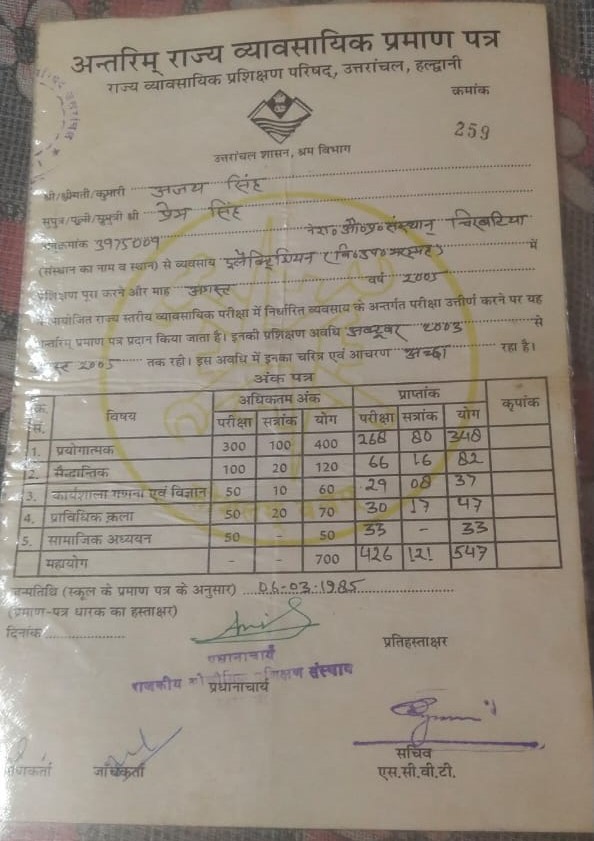 अन्तरिम् राज्य व्यावसायिक प्रमाण पत्र
राज्य व्यावसायिक प्रशिक्षण परिषद्, उत्तरांचल, हल्द्वानी
क्रमांक
259
उत्तरांचल शासन, श्रम विभाग
श्री/श्रीमती/कुमारी अजय सिंह
सुपुत्र/पुत्री/सुपुत्री श्री प्रेम सिंह
3975009 औ०प्र०संस्थान्
(संस्थान का नाम व स्थान) से व्यवसाय में
प्रशिक्षण पूरा करने और माह अगस्त वर्ष 2005
आयोजित राज्य स्तरीय व्यावसायिक परीक्षा में निर्धारित व्यवसाय के अन्तर्गत परीक्षा उत्तीर्ण करने पर यह
अन्तरिम् प्रमाण पत्र प्रदान किया जाता है। इनकी प्रशिक्षण अवधि अक्टूबर 2003 से
अगस्त 2005 तक रही। इस अवधि में इनका चरित्र एवं आचरण अच्छा रहा है।
अंक पत्र
विषय अधिकतम अंक प्राप्तांक कृपांक
परीक्षा सत्रांक योग परीक्षा सत्रांक योग
1. प्रयोगात्मक 300 100 400 268 80 348
2. सैद्धान्तिक 100 20 120 66 16 82
3. कार्यशाला गणना एवं विज्ञान 50 10 60 29 08 37
4. प्राविधिक कला 50 20 70 30 17 47
5. सामाजिक अध्ययन 50 - 50 33 - 33
महायोग - - 700 426 121 547
जन्मतिथि (स्कूल के प्रमाण पत्र के अनुसार) 06-03-1985
(प्रमाण-पत्र धारक का हस्ताक्षर)
दिनांक
प्रतिहस्ताक्षर
प्रधानाचार्य
राजकीय औद्योगिक प्रशिक्षण संस्थान
प्रधानाचार्य
जांचकर्ता
सचिव
एस.सी.वी.टी.